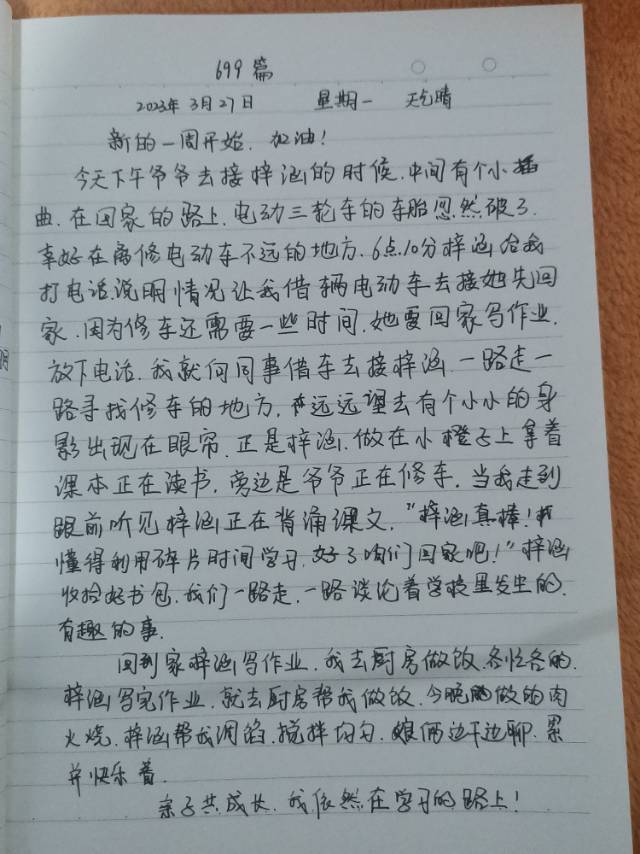 699篇
2023年3月27日 星期一 天气晴
新的一周开始,加油!
今天下午爷爷去接梓涵的时候,中间有个小插
曲,在回家的路上,电动三轮车的车胎忽然破了,
幸好在离修电动车不远的地方,6点10分梓涵给我
打电话,说明情况让我借辆电动车去接她先回
家,因为修车还需要一些时间,她要回家写作业,
放下电话,我就向同事借车去接梓涵,一路走一
路寻找修车的地方,远远望去有个小小的身
影出现在眼帘,正是梓涵,做在小橙子上拿着
课本正在读书,旁边是爷爷正在修车,当我走到
跟前听见梓涵正在背诵课文,"梓涵真棒!我
懂得利用碎片时间学习,好了咱们回家吧!"梓涵
收拾好书包,我们一路走,一路谈论着学校里发生的,
有趣的事.
回到家梓涵写作业,我去厨房做饭,各忙各的,
梓涵写完作业,就去厨房帮我做饭,今晚做的肉
火烧,梓涵帮我调馅,搅拌均匀,娘俩边干边聊,累
并快乐着.
亲子共成长,我依然在学习的路上!